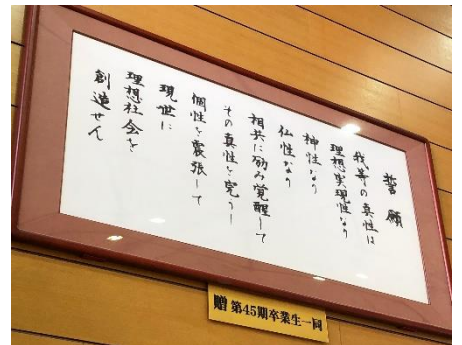 誓願
我等の真性は
理想実現性なり
神性なり
仏性なり
相共に励み覚醒して
その真性を完うし
個性を震張して
現世に
理想社会を
創造せん
贈 第45期卒業生一同